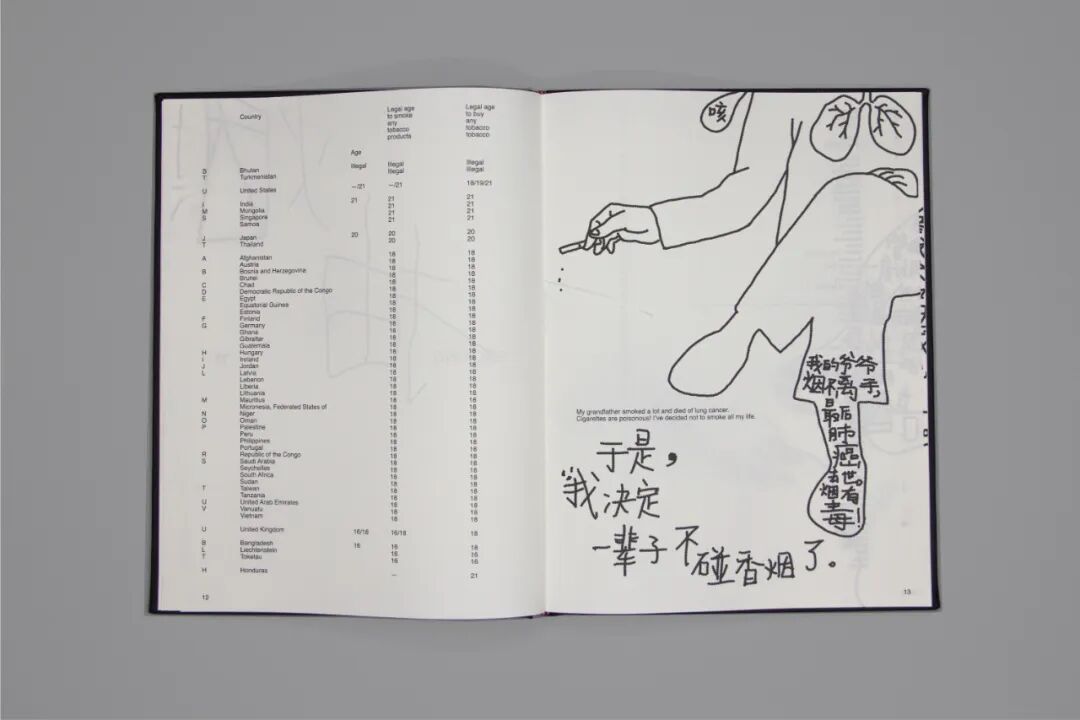 Country
Legal age
to smoke
any
tobacco
products
Legal age
to buy
any
tobacco
tobacco
Age
Illegal
B Bhutan Illegal Illegal
T Turkmenistan Illegal Illegal
U United States —/21 —/21 18/19/21
I India 21 21 21
M Mongolia 21 21
S Singapore 21 21
Samoa 21 21
J Japan 20 20 20
T Thailand 20 20
A Afghanistan 18 18
Austria 18 18
B Bosnia and Herzegovina 18 18
Brunei 18 18
C Chad 18 18
D Democratic Republic of the Congo 18 18
E Egypt 18 18
Equatorial Guinea 18 18
Estonia 18 18
F Finland 18 18
G Germany 18 18
Ghana 18 18
Gibraltar 18 18
Guatemala 18 18
H Hungary 18 18
I Ireland 18 18
J Jordan 18 18
L Latvia 18 18
Lebanon 18 18
Liberia 18 18
Lithuania 18 18
M Mauritius 18 18
Micronesia, Federated States of 18 18
N Niger 18 18
O Oman 18 18
P Palestine 18 18
Peru 18 18
Philippines 18 18
Portugal 18 18
R Republic of the Congo 18 18
S Saudi Arabia 18 18
Seychelles 18 18
South Africa 18 18
Sudan 18 18
T Taiwan 18 18
Tanzania 18 18
U United Arab Emirates 18 18
V Vanuatu 18 18
Vietnam 18 18
U United Kingdom 16/18 16/18 18
B Bangladesh 16 16 18
L Liechtenstein 16 16
T Tokelau 16 16
H Honduras — 21
12
咳
我的爷爷
烟不离手,
最后
肺
癌
去世。
烟有
毒!
My grandfather smoked a lot and died of lung cancer.
Cigarettes are poisonous! I've decided not to smoke all my life.
于是，
"我决定
一辈子不碰香烟了。
13